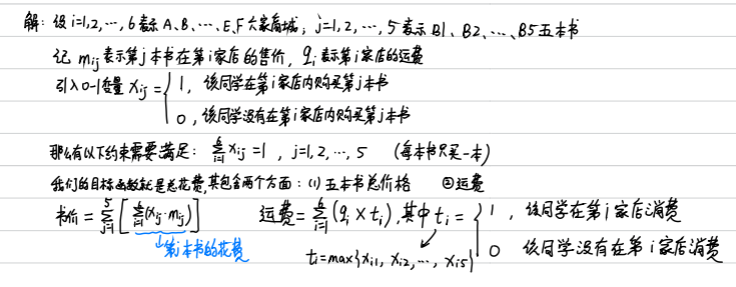 解: 设i=1,2,…,6表示 A、B、…、E、F 六家商城; j=1,2,…,5表示 B1、B2、…、B5五本书
记 mij表示第j本书在第i家店的售价, qi表示第i家店的运费
引入0-1变量 xij = { 1, 该同学在第i家店内购买第j本书
0, 该同学没有在第i家店内购买第j本书
那么有以下约束需要满足: ∑_{i=1}^{6} xij =1 , j=1,2,…,5 (每本书只买一本)
我们的目标函数就是总花费,其包含两个方面: (1) 五本书总价格 ②运费
书价 = ∑_{j=1}^{5} [∑_{i=1}^{6} (xij·mij)] 运费 = ∑_{i=1}^{6} (qi × ti), 其中 ti = { 1 , 该同学在第i家店消费
第j本书的花费 0 该同学没有在第i家店消费
ti=max{xi1, xi2,…, xi5}